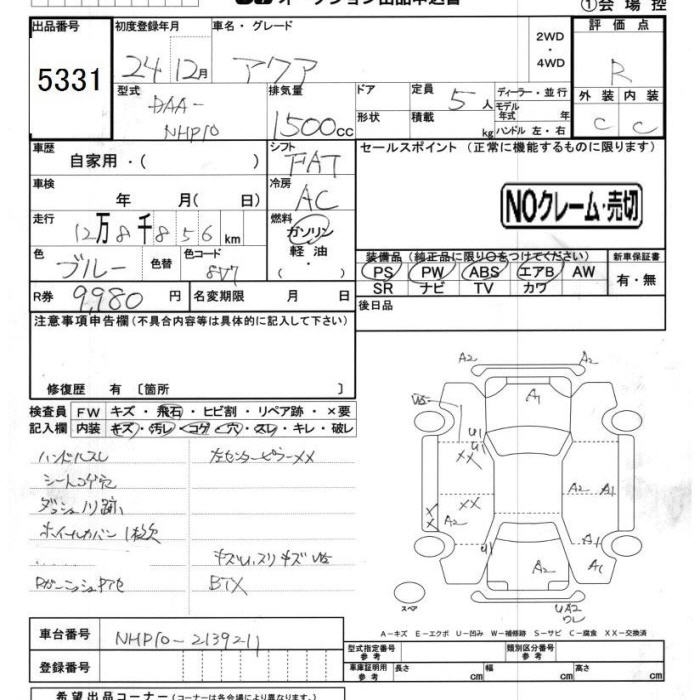 オークション出品申込書
①会場控
出品番号 初度登録年月 車名・グレード 評価点
5331
24 12月 アクア 2WD・4WD R
型式 排気量 ドア 定員 ディーラー・並行
DAA-NHP10 1500cc 5人 モデル年式 年
形状 積載 kg ハンドル 左・右
外装 内装
C C
車歴 シフト セールスポイント (正常に機能するものに限ります)
自家用・( ) FAT
車検 冷房
年 月( 日) AC
NOクレーム・売切
走行 燃料
12万8千856km ガソリン
軽油
( ・ )
色 色替 色コード
ブルー 8V7
装備品 (純正品に限り○をつけてください) 新車保証書
PS PW ABS エアB AW 有・無
SR ナビ TV カワ
R券 9,980円 名変期限 月 日
後日品
注意事項申告欄(不具合内容等は具体的に記入して下さい)
修復歴 有 〔箇所 〕
検査員 FW キズ・飛石・ヒビ割・リペア跡・×要
記入欄 内装 キズ・汚レ・コゲ・穴・スレ・キレ・破レ
ハンドルスレ 左センターピラーXX
シートコゲ穴
ダッシュノリ跡
ホイールカバー1枚欠
BTX
A2 A2
A1
U1
XX
A2 A1
XX
XX
A2
A1
U1
A2 A1
スペア
UA2
ワレ
A-キズ E-エクボ U-凹み W-補修跡 S-サビ C-腐食 XX-交換済
車台番号 NHP10-2139211
登録番号
型式指定番号 参考 類別区分番号 参考
車庫証明用 参考 長さ cm 幅 cm 高さ cm
希望出品コーナー (コーナーは各会場により異なります)